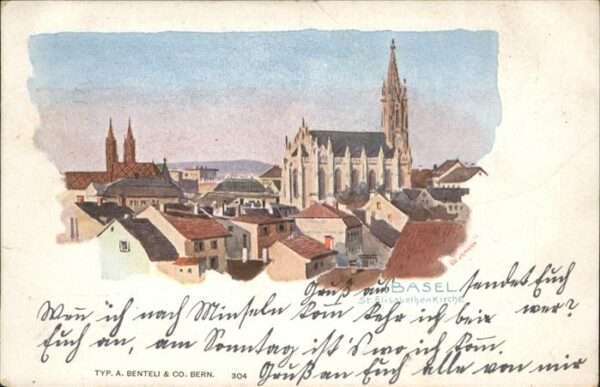 BASEL
St. Elisabethen Kirche
Gruß aus sendet Euch
Wen ich nach Minseln kom kehr ich bei wer?
Euch an, am Sonntag ist's wo ich kom.
TYP. A. BENTELI & CO. BERN. 304
Gruß an Euch alle von mir